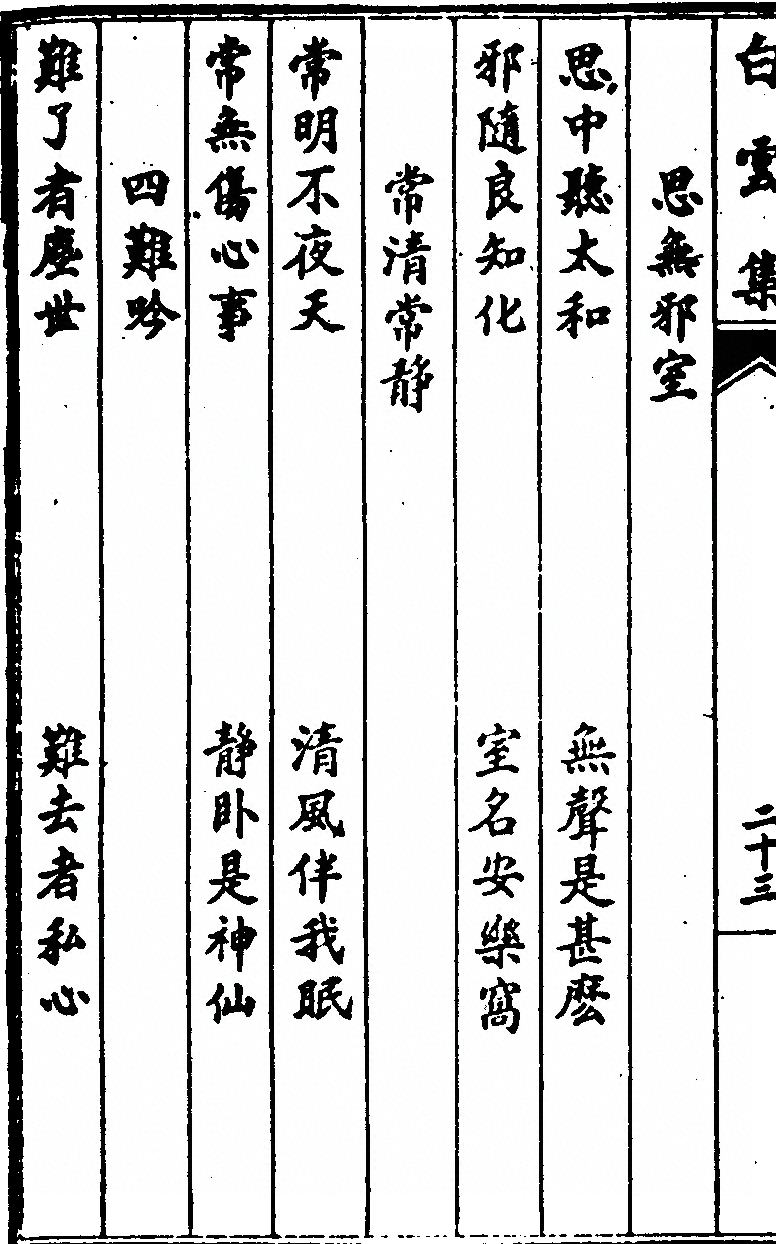 白雲集
二十三
思無邪室
思中聽太和　無聲是甚麽
邪隨良知化　室名安樂窩
常清常静
常明不夜天　清風伴我眠
常無傷心事　静卧是神仙
四難吟
難了者塵世　難去者私心